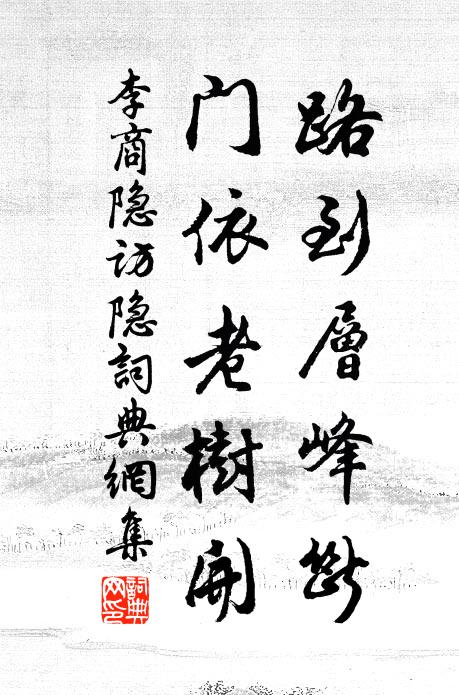 路到層峰斷
门依老樹開
李商隐访隐詞典網集
詞典网印